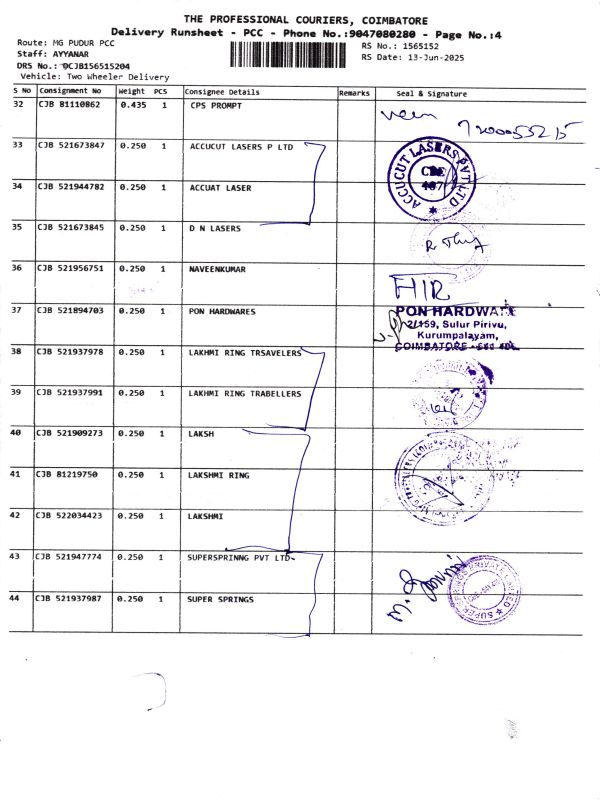 THE PROFESSIONAL COURIERS, COIMBATORE
Delivery Runsheet - PCC - Phone No.:9047080280 - Page No.:4
Route: MG PUDUR PCC
RS No.: 1565152
Staff: AYYANAR
RS Date: 13-Jun-2025
DRS No.: DCJB156515204
Vehicle: Two Wheeler Delivery
S No Consignment No Weight PCS Consignee Details Remarks Seal & Signature
32 CJB 81110862 0.435 1 CPS PROMPT
33 CJB 521673847 0.250 1 ACCUCUT LASERS P LTD
ACCUCUT LASERS PVT LTD
CBE
407
34 CJB 521944782 0.250 1 ACCUAT LASER
35 CJB 521673845 0.250 1 D N LASERS
36 CJB 521956751 0.250 1 NAVEENKUMAR
37 CJB 521894703 0.250 1 PON HARDWARES
PON HARDWARE
2/159, Sulur Pirivu,
Kurumpalayam,
38 CJB 521937978 0.250 1 LAKHMI RING TRSAVELERS
39 CJB 521937991 0.250 1 LAKHMI RING TRABELLERS
40 CJB 521909273 0.250 1 LAKSH
41 CJB 81219750 0.250 1 LAKSHMI RING
42 CJB 522034423 0.250 1 LAKSHMI
43 CJB 521947774 0.250 1 SUPERSPRINNG PVT LTD
44 CJB 521937987 0.250 1 SUPER SPRINGS
SUPER SPRINGS PRIVATE LIMITED